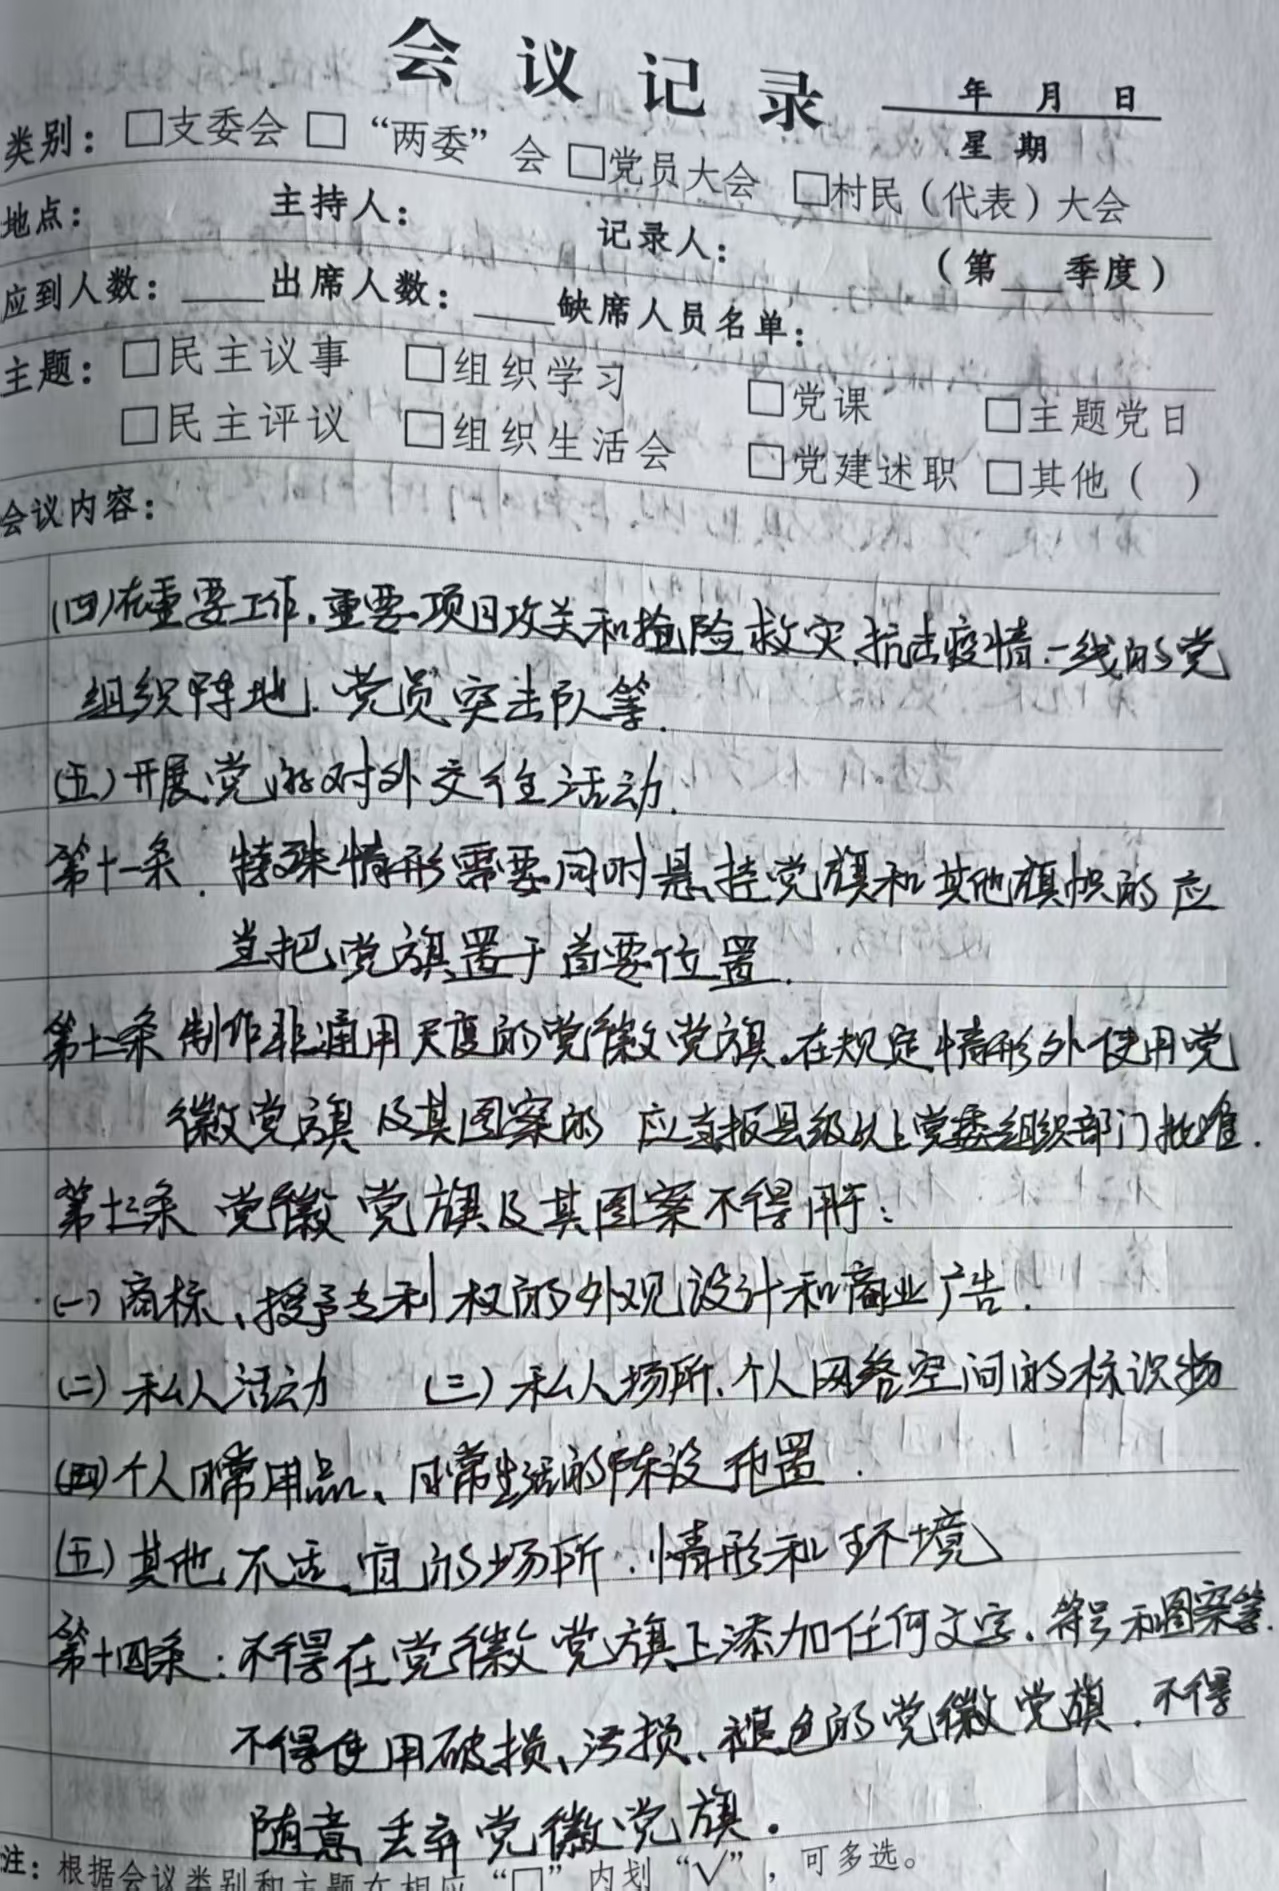 会议记录
年 月 日
星期
类别：□支委会 □“两委”会 □党员大会 □村民（代表）大会
地点： 主持人： 记录人： （第___季度）
应到人数：____出席人数：____缺席人员名单：
主题：□民主议事 □组织学习 □党课 □主题党日
□民主评议 □组织生活会 □党建述职 □其他（ ）
会议内容：
(四)在重要工作、重要项目攻关和抢险救灾、抗击疫情一线的党
组织阵地、党员突击队等.
(五)开展党的对外交往活动.
第十一条. 特殊情形需要同时悬挂党旗和其他旗帜的应
当把党旗置于首要位置.
第十二条 制作非通用尺度的党徽党旗、在规定情形外使用党
徽党旗及其图案的 应当报县级以上党委组织部门批准.
第十三条 党徽党旗及其图案不得用于：
(一)商标、授予专利权的外观设计和商业广告.
(二)私人活动 (三)私人场所、个人网络空间的标识物
(四)个人日常用品、日常生活的陈设布置.
(五)其他不适宜的场所、情形和环境
第十四条：不得在党徽党旗上添加任何文字、符号和图案等.
不得使用破损、污损、褪色的党徽党旗. 不得
随意丢弃党徽党旗。
注：根据会议类别和主题在相应“□”内划“√”，可多选。